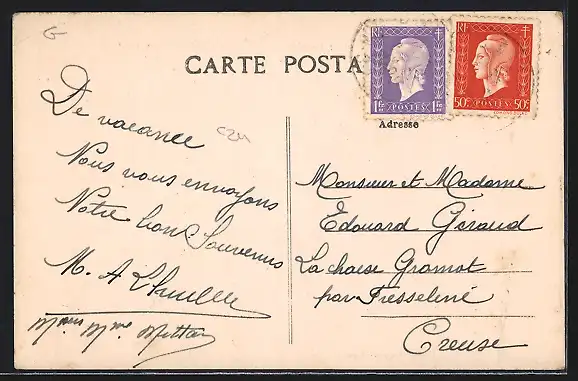 CARTE POSTA
RF
1F
POSTES
1F
RF
50c
POSTES
50c
Adresse
De vacance
Nous vous envoyons
Notre bon Souvenir
M. A
Monsieur et Madame
Edouard Géraud
La chaise Gramot
par Fresseline
Creuse